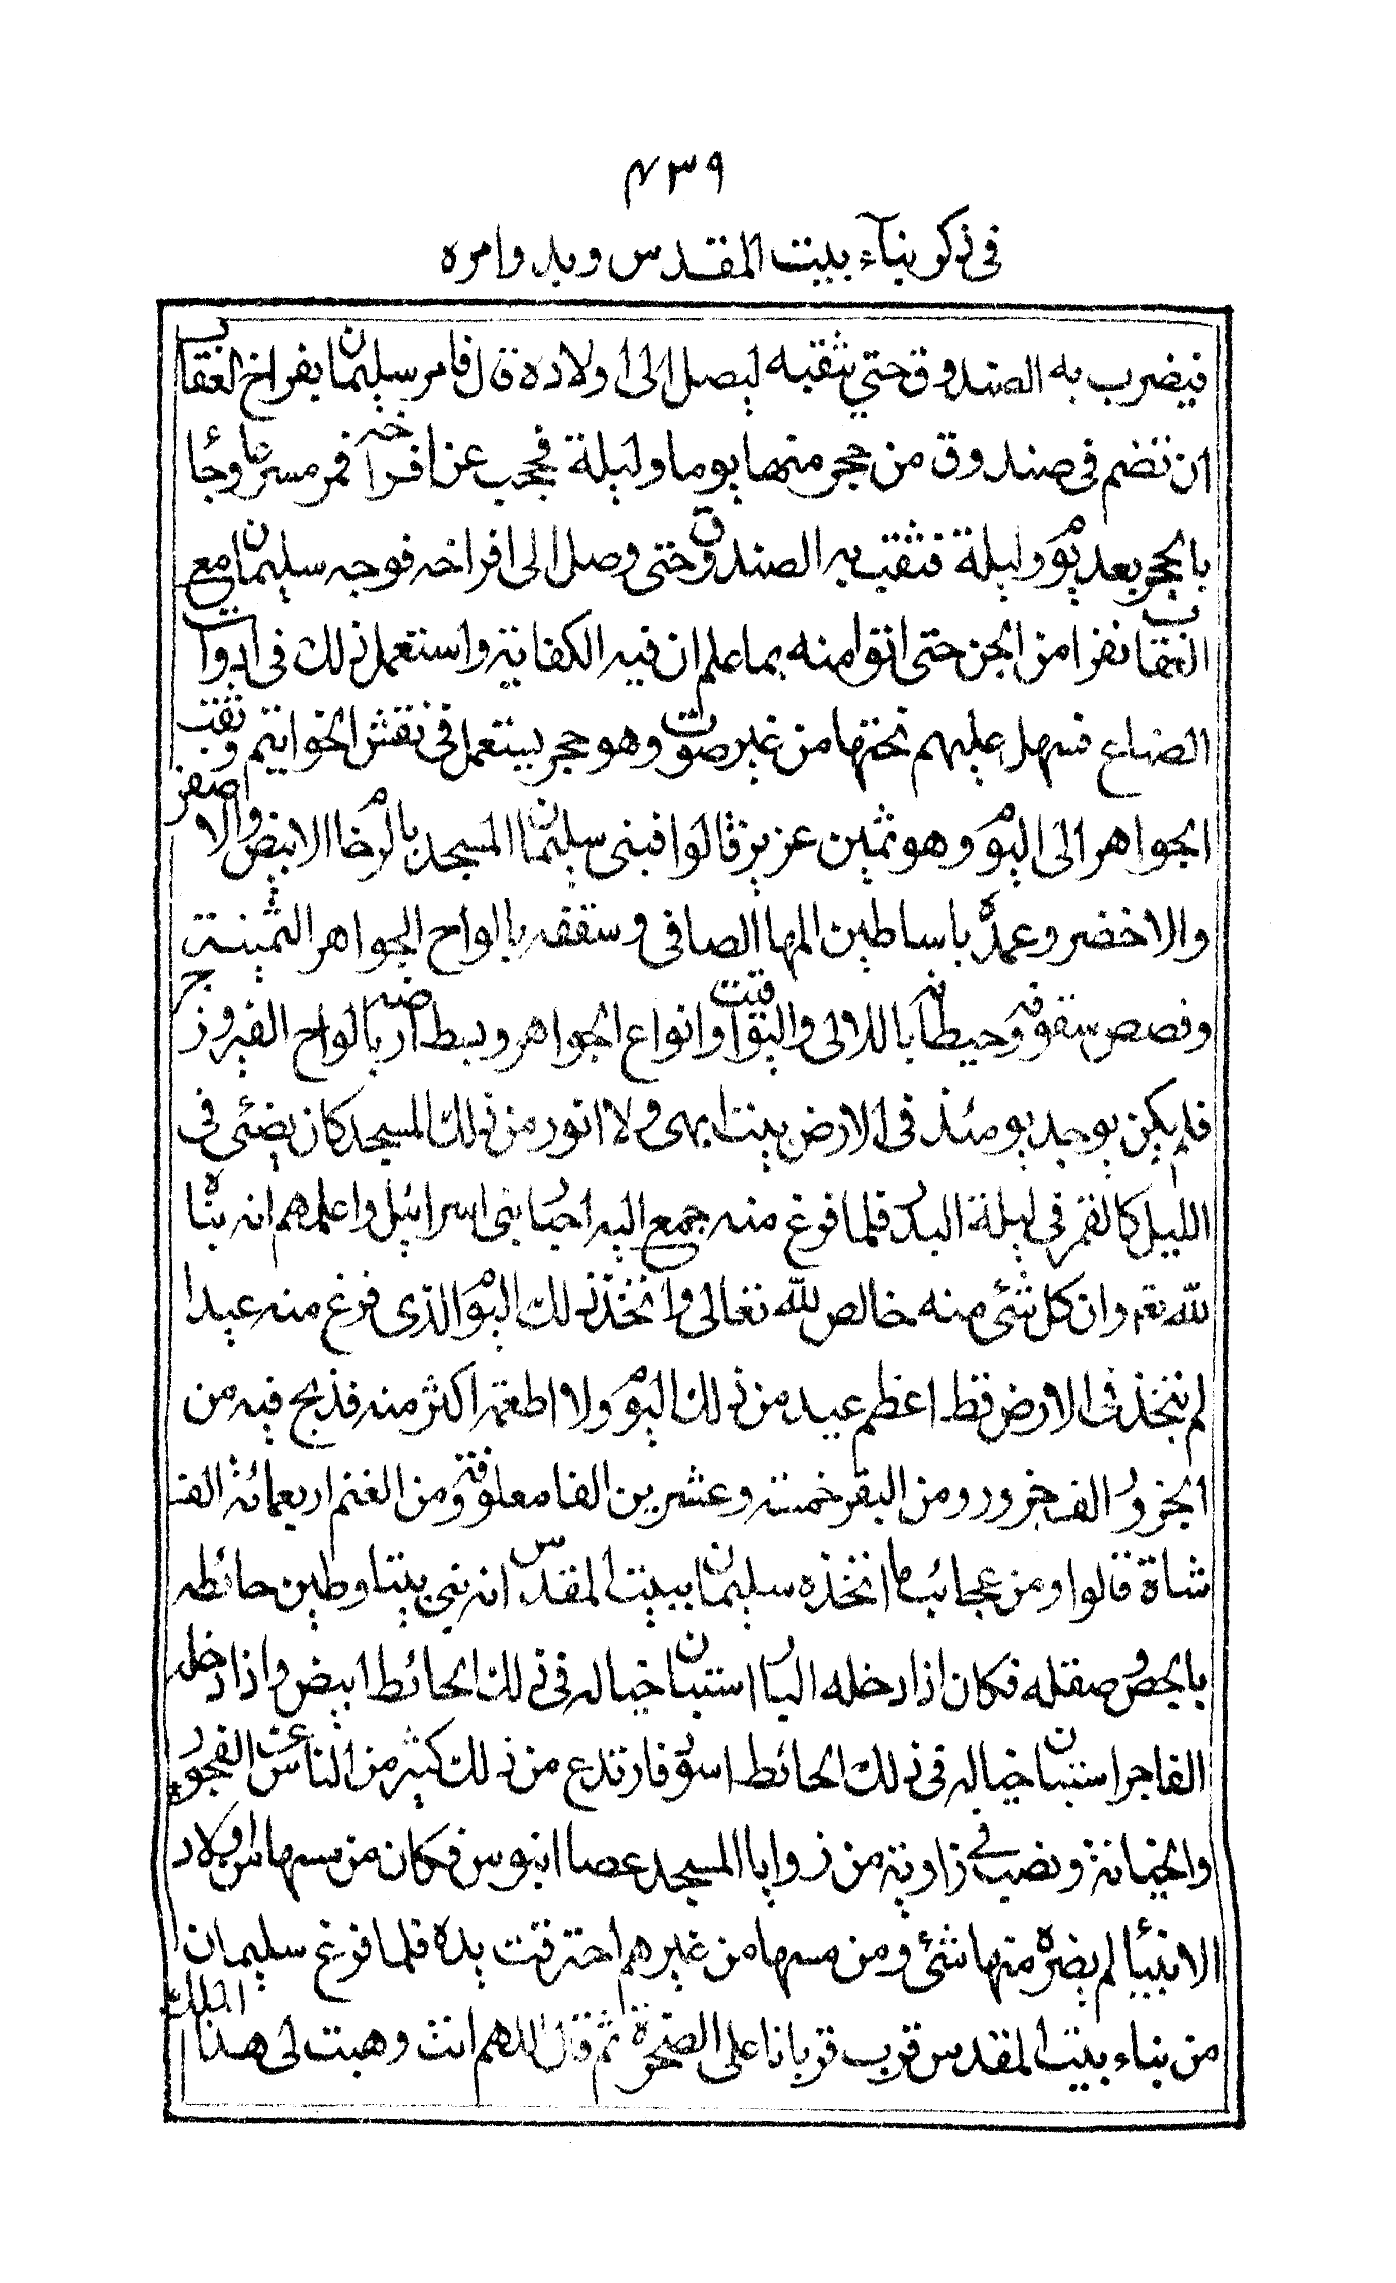 ٤٣٩
في ذكر بنآء بيت المقدس وبدو امره
فيضرب به الصندوق حتي يثقبه ليصل الى اولاده قال فامر سليمان بفراخ العقاب
ان تضم في صندوق من حجر منها يوما وليلة فحجب عن افراخه فمر مسرعا وجأ
بالحجر بعد يوم وليلة فثقب به الصندوق حتى وصل الى افراخه فوجه سليمان مع
العقاب نفرا من الجن حتى اتوا منه بما علم ان فيه الكفاية واستعمل ذلك في ادوات
الصناع فسهل عليهم نحتها من غير صوت وهو حجر يستعمل في نقش الخواتيم وثقب
الجواهر الى اليوم وهو ثمين عزيز قالوا فبنى سليمان المسجد بالرخام الابيض والاصفر
والاخضر وعمده باساطين المها الصافي وسقفه بالواح الجواهر الثمينة
وفصص سقوفه وحيطانه باللالى واليواقيت وانواع الجواهر وبسط ارضه بالواح الفيروزج
فلم يكن يوجد يومئذ في الارض بيت ابهى ولا انور من ذلك المسجد كان يضئى في
الليل كالقمر في ليلة البدر فلما فرغ منه جمع اليه احبار بنى اسرائيل واعلمهم انه بناه
لله تعم وان كل شئى منه خالص لله تعالى واتخذ ذلك اليوم الذى فرغ منه عيدا
لم يتخذ في الارض قط اعظم عيد من ذلك اليوم ولا اطعمة اكثر منه فذبح فيه من
الجزور الف جزور ومن البقر خمسة وعشرين الفا معلوفة ومن الغنم اربعمائة الف
شاة قالوا ومن عجائب ما اتخذه سليمان ببيت المقدس انه بنى بيتا وطين حائطه
بالجص وصقله فكان اذا دخله البار استبان خياله في ذلك الحائط ابيض واذا دخله
الفاجر استبان خياله في ذلك الحائط اسود فارتدع من ذلك كثير من الناس عن الفجور
والخيانة ونصب في زاوية من زوايا المسجد عصا ابنوس فكان من مسها من اولاد
الانبيأ لم يضره منها شئى ومن مسها من غيرهم احترقت يده فلما فرغ سليمان
من بناء بيت المقدس قرب قربانا على الصخرة ثم قال اللهم انت وهبت لى هذا الملك